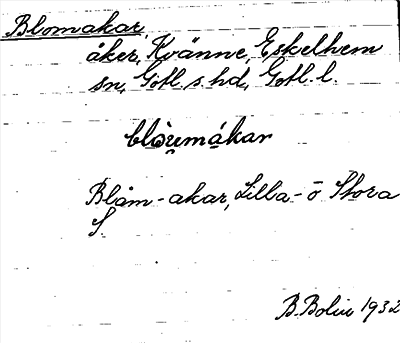 Blomakar,
åker, Kvänne, Eskelhem
sn, Gotl. s. hd, Gotl. l.
blòumákar
Blåm-akar, Lilla- o Stora
S.
B. Bolin 1932